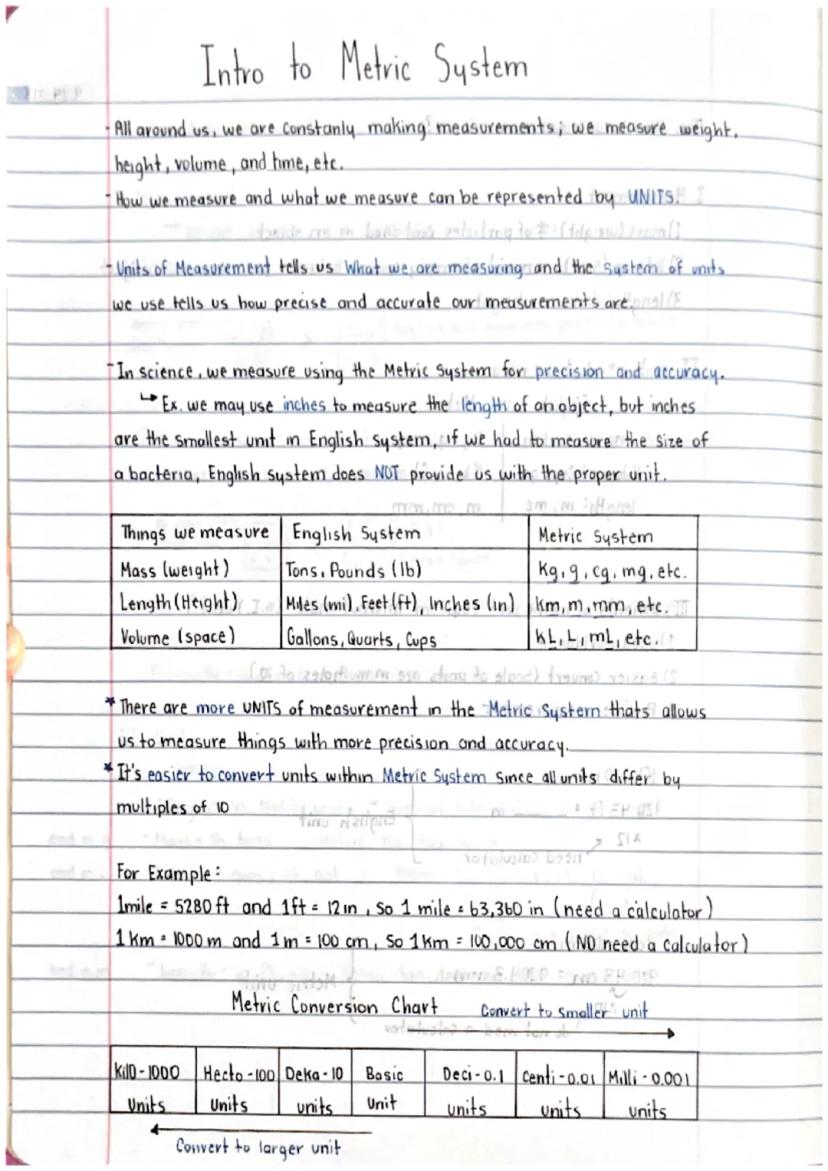 Intro to Metric System
- All around us, we are constanly making measurements; we measure weight,
height, volume, and time, etc.
- How we measure and what we measure can be represented by UNITS.
- Units of Measurement tells us What we are measuring and the System of units
we use tells us how precise and accurate our measurements are.
- In science, we measure using the Metric System for precision and accuracy.
↳ Ex. we may use inches to measure the length of an object, but inches
are the smallest unit in English system, if we had to measure the size of
a bacteria, English system does NOT provide us with the proper unit.
Things we measure English System Metric System
Mass (weight) Tons, Pounds (lb) Kg, g, cg, mg, etc.
Length (Height) Miles (mi), Feet (ft), Inches (in) Km, m, mm, etc.
Volume (space) Gallons, Quarts, Cups KL, L, mL, etc.
* There are more UNITS of measurement in the Metric System thats allows
us to measure things with more precision and accuracy.
* It's easier to convert units within Metric System since all units differ by
multiples of 10
For Example:
1mile = 5280 ft and 1ft = 12 in, So 1 mile = 63,360 in (need a calculator)
1 Km = 1000 m and 1 m = 100 cm, So 1 Km = 100,000 cm (NO need a calculator)
Metric Conversion Chart Convert to smaller unit
Kilo - 1000 Hecto - 100 Deka - 10 Basic Deci - 0.1 Centi - 0.01 Milli - 0.001
Units Units units Unit units units units
Convert to larger unit